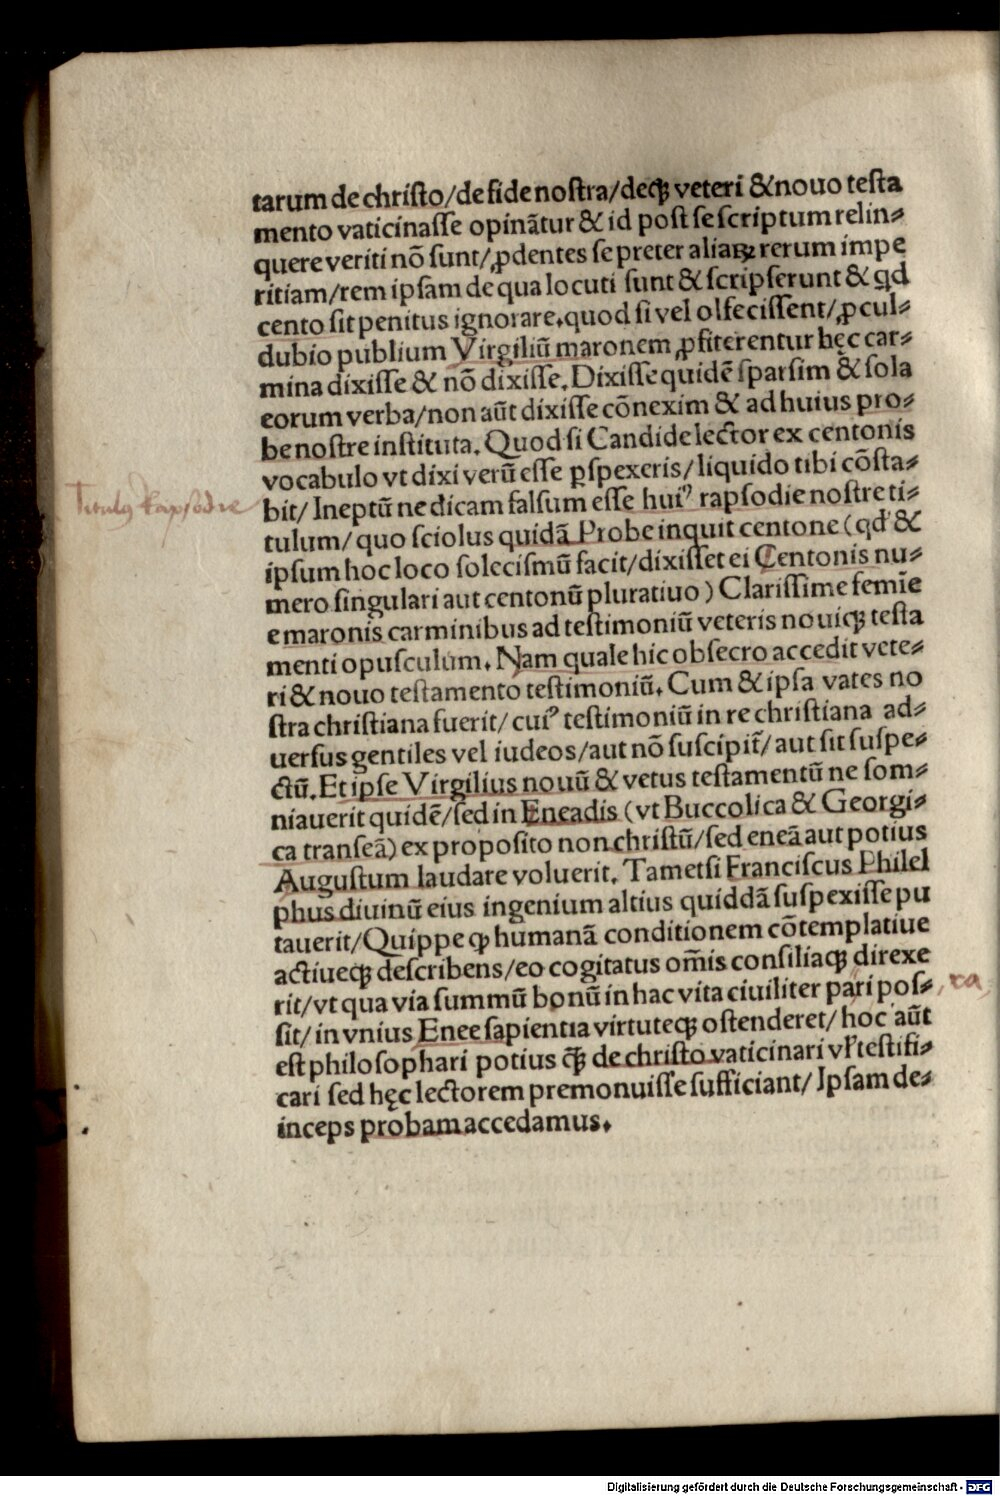 tarum de christo/de fide nostra/decꝫ veteri &nouo testa
mento vaticinasse opinãtur & id post se scriptum relin⸗
quere veriti nõ sunt/ꝓdentes se preter aliaꝝ rerum impe
ritiam/rem ipsam de qua locuti sunt & scripserunt & qd
cento sit penitus ignorare.quod si vel olfecissent/ꝓcul⸗
dubio publium Virgiliũ maronem ꝓfiterentur hęc car⸗
mina dixisse & nõ dixisse.Dixisse quidẽ sparsim & sola
eorum verba/non aũt dixisse cõnexim & ad huius pro⸗
be nostre instituta. Quod si Candide lector ex centonis
vocabulo vt dixi verũ esse ꝑspexeris/liquido tibi cõsta⸗
Titulꝰ Rapsodie
bit/ Ineptũ ne dicam falsum esse huiꝰ rapsodie nostre ti⸗
tulum/ quo sciolus quidã Probe inquit centone (qd &
ipsum hoc loco solecismũ facit/dixisset ei Centonis nu⸗
mero singulari aut centonũ pluratiuo) Clarissime femĩe
e maronis carminibus ad testimoniũ veteris nouiqꝫ testa
menti opusculum. Nam quale hic obsecro accedit vete⸗
ri & nouo testamento testimoniũ. Cum & ipsa vates no
stra christiana fuerit/ cuiꝰ testimoniũ in re christiana ad⸗
uersus gentiles vel iudeos/aut nõ suscipit̃/ aut sit suspe⸗
ctũ.Et ipse Virgilius nouũ & vetus testamentũ ne som⸗
niauerit quidẽ/sed in Eneadis (vt Buccolica & Georgi⸗
ca transeã) ex proposito non christũ/sed eneã aut potius
Augustum laudare voluerit. Tametsi Franciscus Philel
phus diuinũ eius ingenium altius quiddã suspexisse pu
tauerit/Quippe qꝫ humanã conditionem cõtemplatiue
actiueqꝫ describens/eo cogitatus om̃is consiliaqꝫ direxe
rit/vt qua via summũ bonũ in hac vita ciuiliter pari pos⸗
, ra,
sit/ in vnius Enee sapientia virtuteqꝫ ostenderet/ hoc aũt
est philosophari potius qꝫ̃ de christo vaticinari vł testifi⸗
cari sed hęc lectorem premonuisse sufficiant/ Ipsam de⸗
inceps probam accedamus.
Digitalisierung gefördert durch die Deutsche Forschungsgemeinschaft - DFG